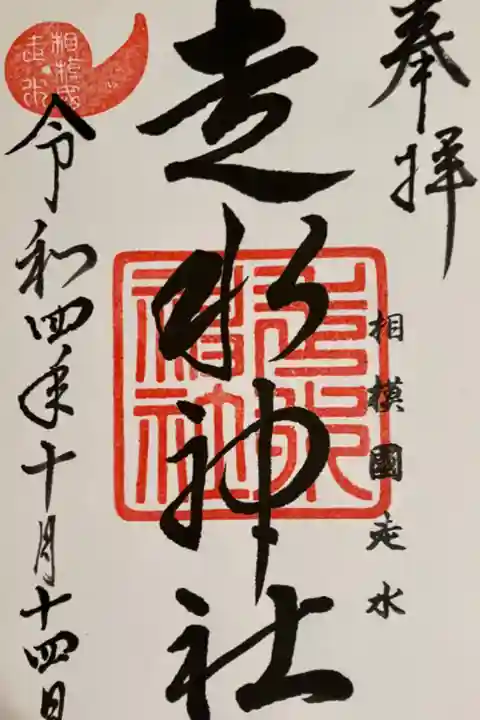 奉拝
相模國走水
走水神社
走水神社
令和四年十月十四日
相模國走水